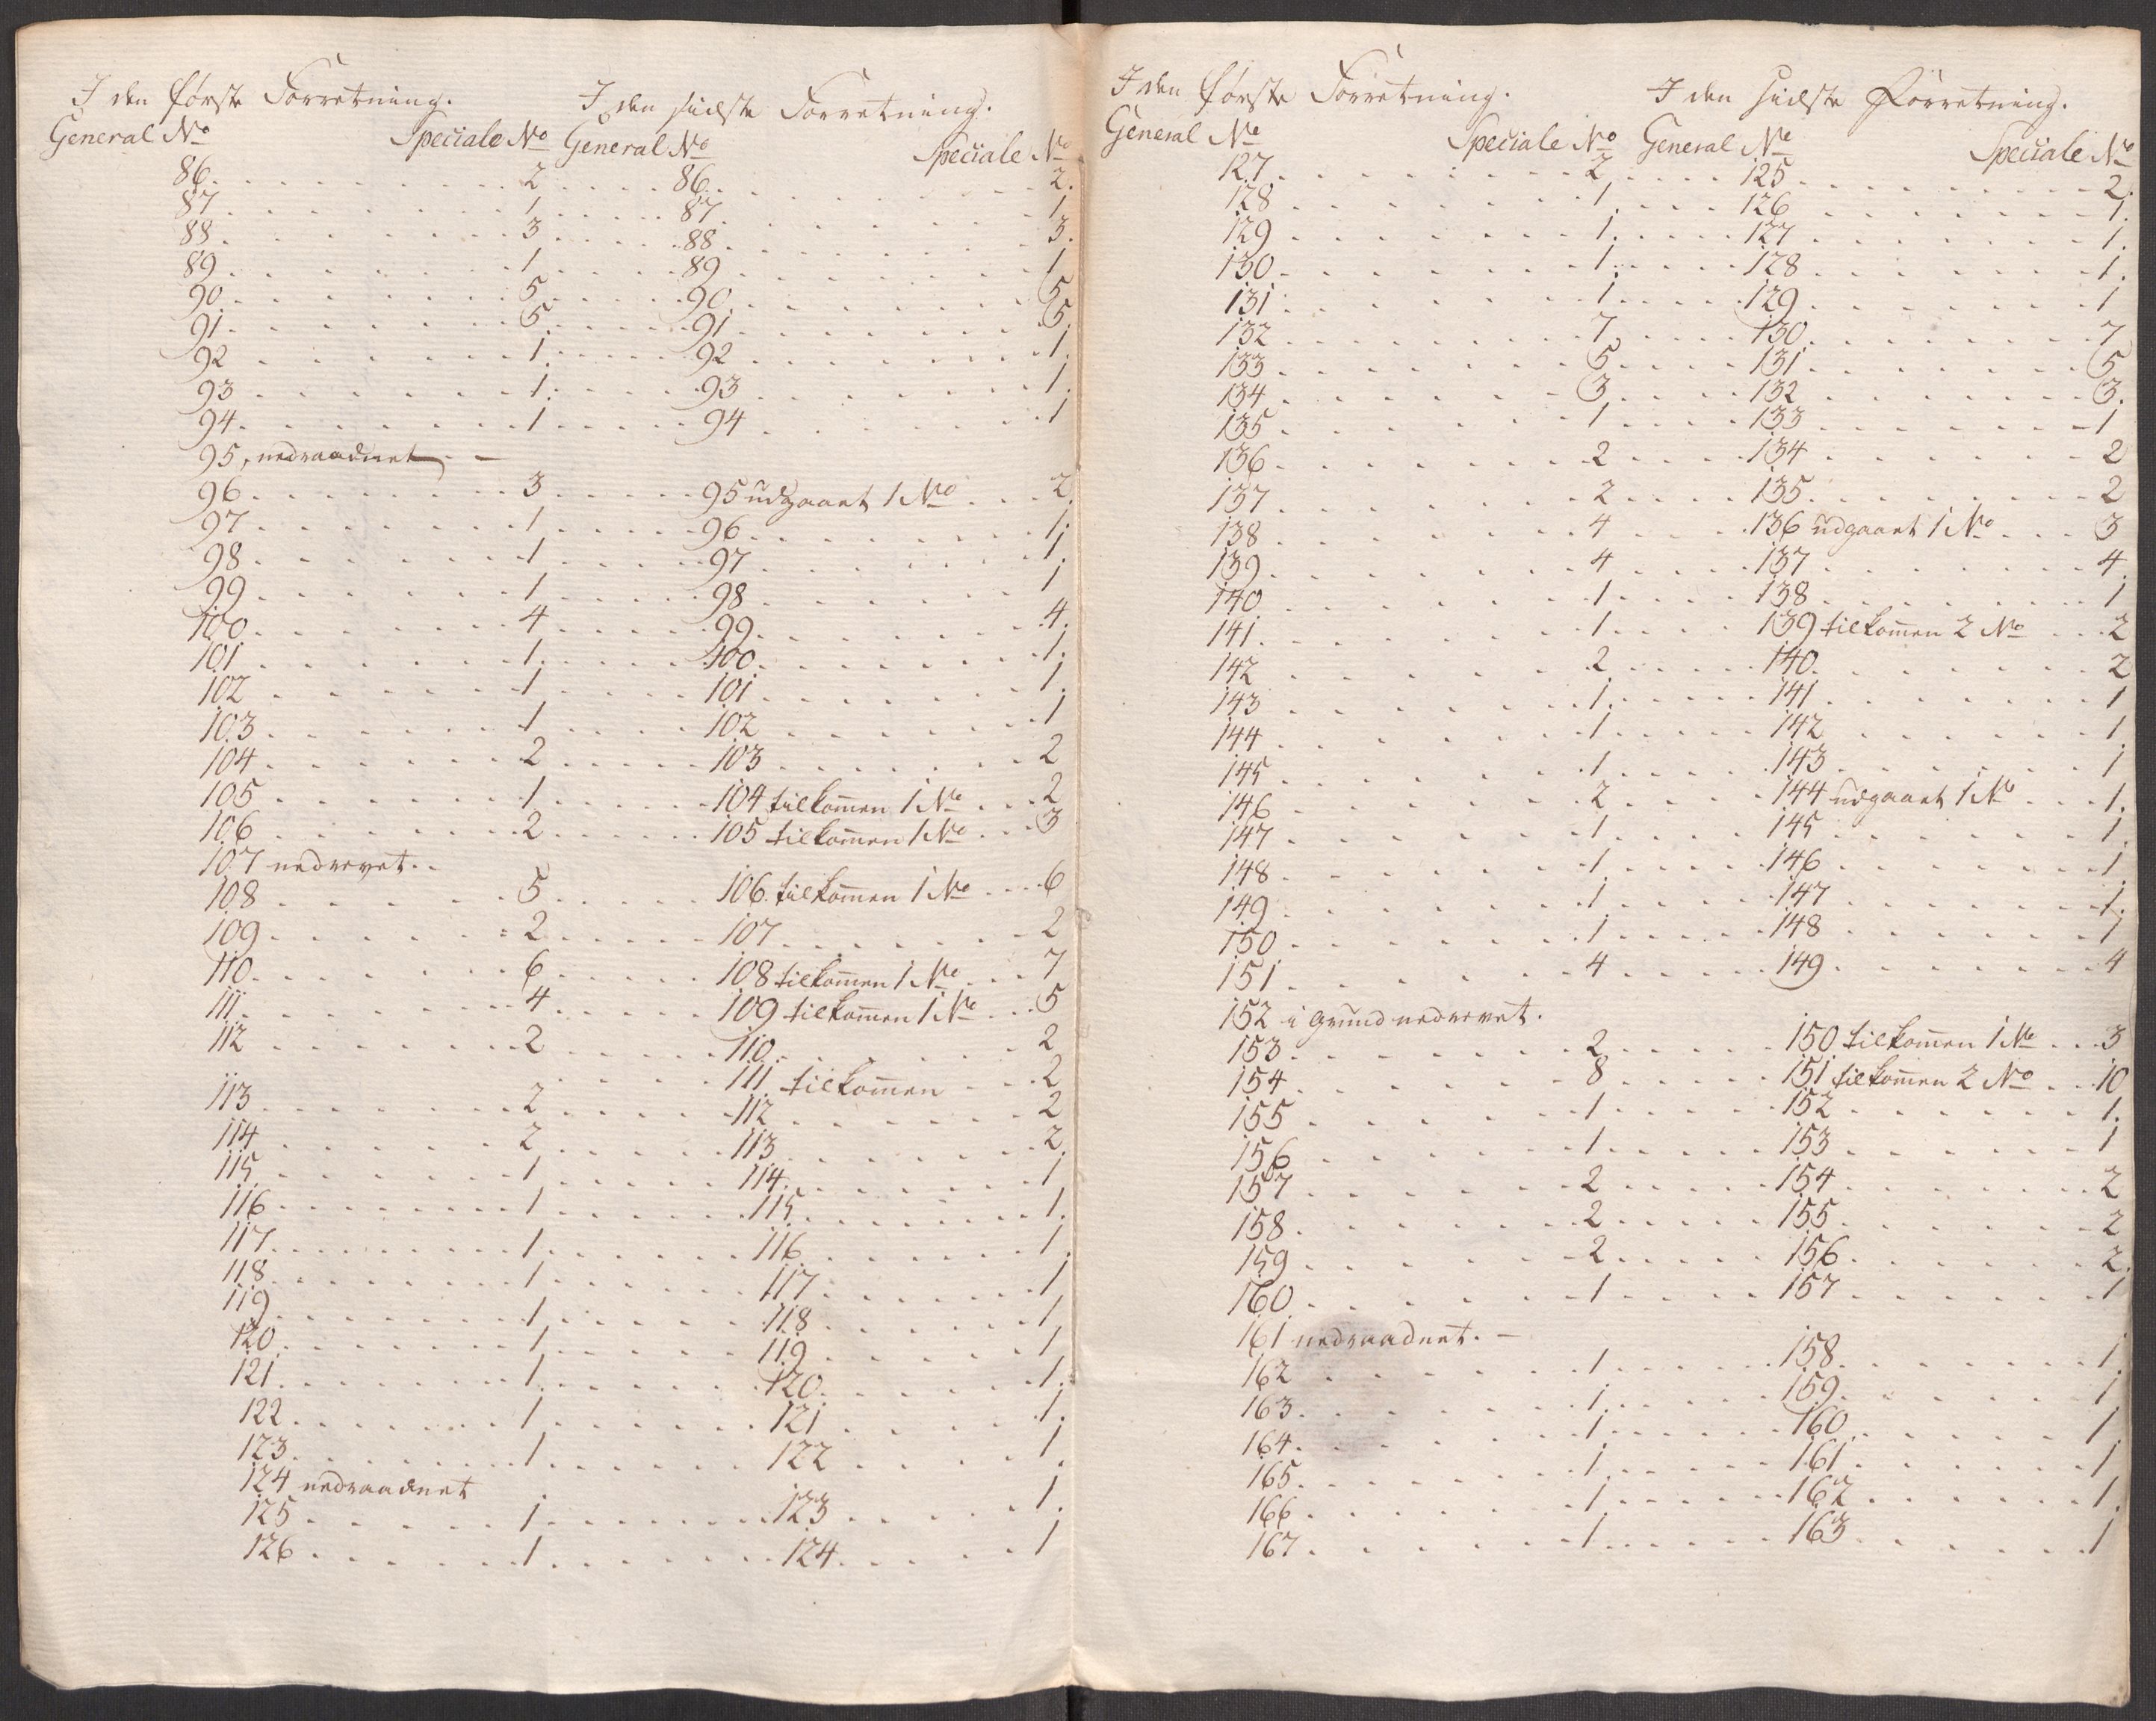 I den første Forretning. I den sidste Forretning.
General No Speciale No General No Speciale No
86. 2 86. 2.
87. 1 87. 1
88. 3 88. 3.
89. 1 89 1
90. 5 90. 5
91. 5 91. 5.
92 1. 92 1.
93 1. 93 1.
94. 1 94 1
95, nedraadnet
96. 3 95 udgaaet 1 No 2.
97. 1 96. 1.
98. 1 97. 1.
99. 1 98. 1
100. 4 99. 4.
101 1. 100. 1.
102 1 101. 1.
103. 1 102 1
104. 2 103 2
105 1 104 tilkomen 1 No 2
106 2 105 tilkomen 1 No 3
107 nedrevet.
108 5 106. tilkomen 1 No 6
109 2 107 2
110. 6 108 tilkomen 1 No 7
111. 4 109 tilkomen 1 No 5
112 2 110. 2
111 tilkomen 2
113 2 112 2
114 2 113 2
115 1 114. 1
116 1 115. 1.
117. 1 116 1.
118. 1 117 1
119 1 118 1
120 1 119 1
121. 1. 120. 1.
122. 1 121 1.
123. 1 122 1.
124 nedraadnet
125 1 123 1.
126 1 124. 1
I den første Forretning. I den sidste Forretning.
General No Speciale No General No Speciale No
127. 2 125 2.
128 1 126 1.
129 1. 127 1.
130 1. 128 1.
131 1 129 1
132 7 130. 7
133 5 131. 5
134 3 132 3.
135 1 133 1
136 2 134 2
137. 2 135. 2
138 4 136 udgaaet 1 No 3
139. 4 137 4.
140 1 138 1
141. 1 139 tilkomen 2 No 2
142 2 140. 2
143 1. 141 1
144 1 142 1.
145 1 143 1
146 2 144 udgaaet 1 No 1.
147 1 145 1.
148 1 146 1.
149 1 147 1.
150 1 148 1
151 4 149 4
152 i Grund nedrevet.
153. 2 150 tilkomen 1 No 3
154 8 151 tilkomen 2 No 10
155 1 152 1.
156 1 153 1
157 2 154 2
158. 2 155 2
159 2 156 2.
160 1 157 1
161 nedraadnet.
162 1 158. 1.
163. 1. 159. 1
164. 1 160. 1
165. 1 161 1
166 1 162 1.
167. 1 163 1